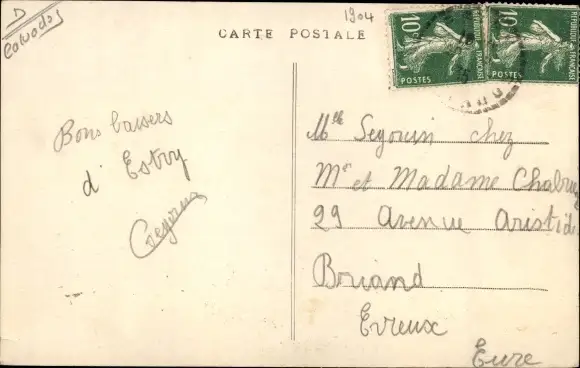 D
Calvados
1904
CARTE POSTALE
10c
POSTES
RÉPUBLIQUE FRANÇAISE
10c
POSTES
RÉPUBLIQUE FRANÇAISE
Bons baisers
d'Estry
Mlle Segouin chez
Mr et Madame
29 Avenue Aristide
Briand
Evreux
Eure